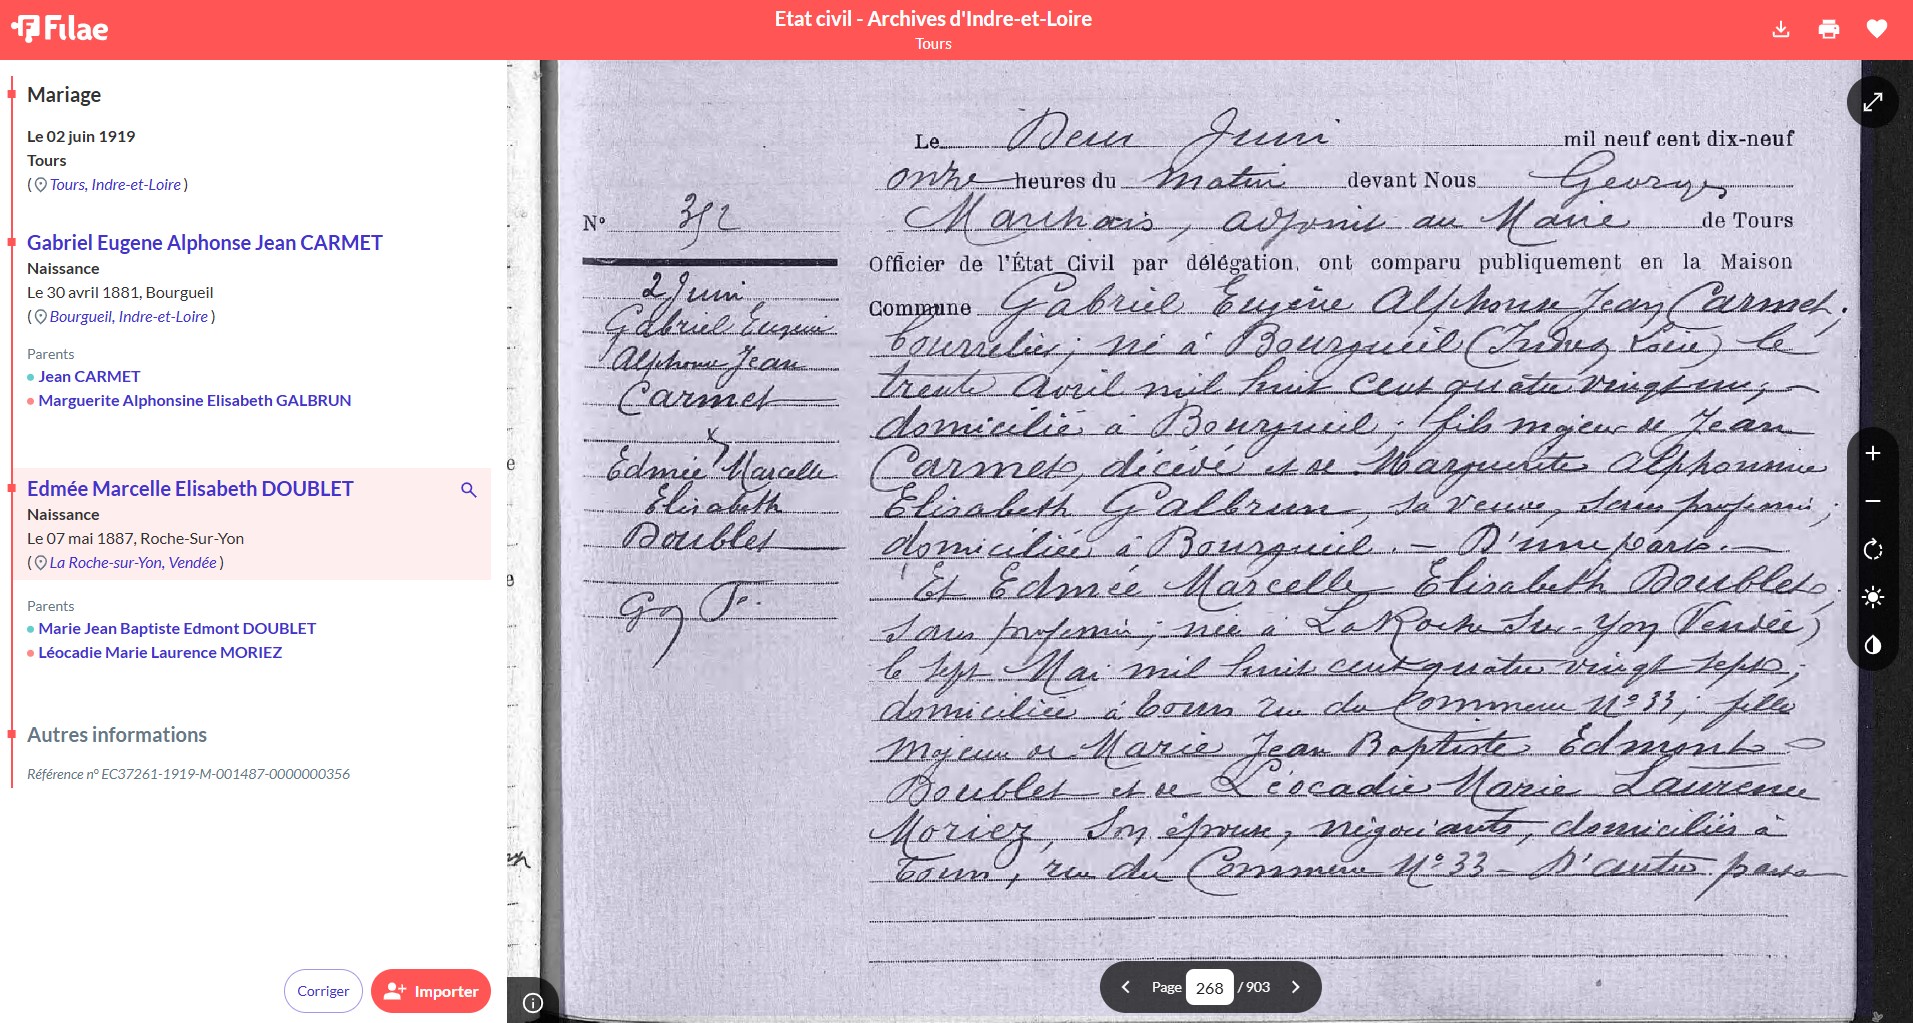 Filae
Etat civil - Archives d'Indre-et-Loire
Tours
Mariage
Le 02 juin 1919
Tours
( Tours, Indre-et-Loire )
Gabriel Eugene Alphonse Jean CARMET
Naissance
Le 30 avril 1881, Bourgueil
( Bourgueil, Indre-et-Loire )
Parents
Jean CARMET
Marguerite Alphonsine Elisabeth GALBRUN
Edmée Marcelle Elisabeth DOUBLET
Naissance
Le 07 mai 1887, Roche-Sur-Yon
( La Roche-sur-Yon, Vendée )
Parents
Marie Jean Baptiste Edmont DOUBLET
Léocadie Marie Laurence MORIEZ
Autres informations
Référence n° EC37261-1919-M-001487-0000000356
Corriger
Importer
N° 352
2 Juin
Gabriel Eugène
Alphonse Jean
Carmet
x
Edmée Marcelle
Elisabeth
Doublet
Le Deux Juin mil neuf cent dix-neuf
onze heures du matin devant Nous Georges
Marchais, adjoint au Maire de Tours
Officier de l'État Civil par délégation, ont comparu publiquement en la Maison
Commune Gabriel Eugène Alphonse Jean Carmet,
bourrelier; né à Bourgueil (Indre & Loire) le
trente Avril mil huit cent quatre vingt un;
domicilié à Bourgueil; fils majeur de Jean
Carmet, décédé et de Marguerite Alphonsine
Elisabeth Galbrun, sa veuve, sans profession;
domiciliée à Bourgueil. - D'une part. -
Et Edmée Marcelle Elisabeth Doublet,
sans profession; née à La Roche Sur-Yon (Vendée)
le sept Mai mil huit cent quatre vingt sept;
domiciliée à Tours rue du Commerce N° 33; fille
majeure de Marie Jean Baptiste Edmont
Doublet et de Léocadie Marie Laurence
Moriez, son épouse, négociants, domiciliés à
Tours, rue du Commerce N° 33 - D'autre part
Page 268 / 903